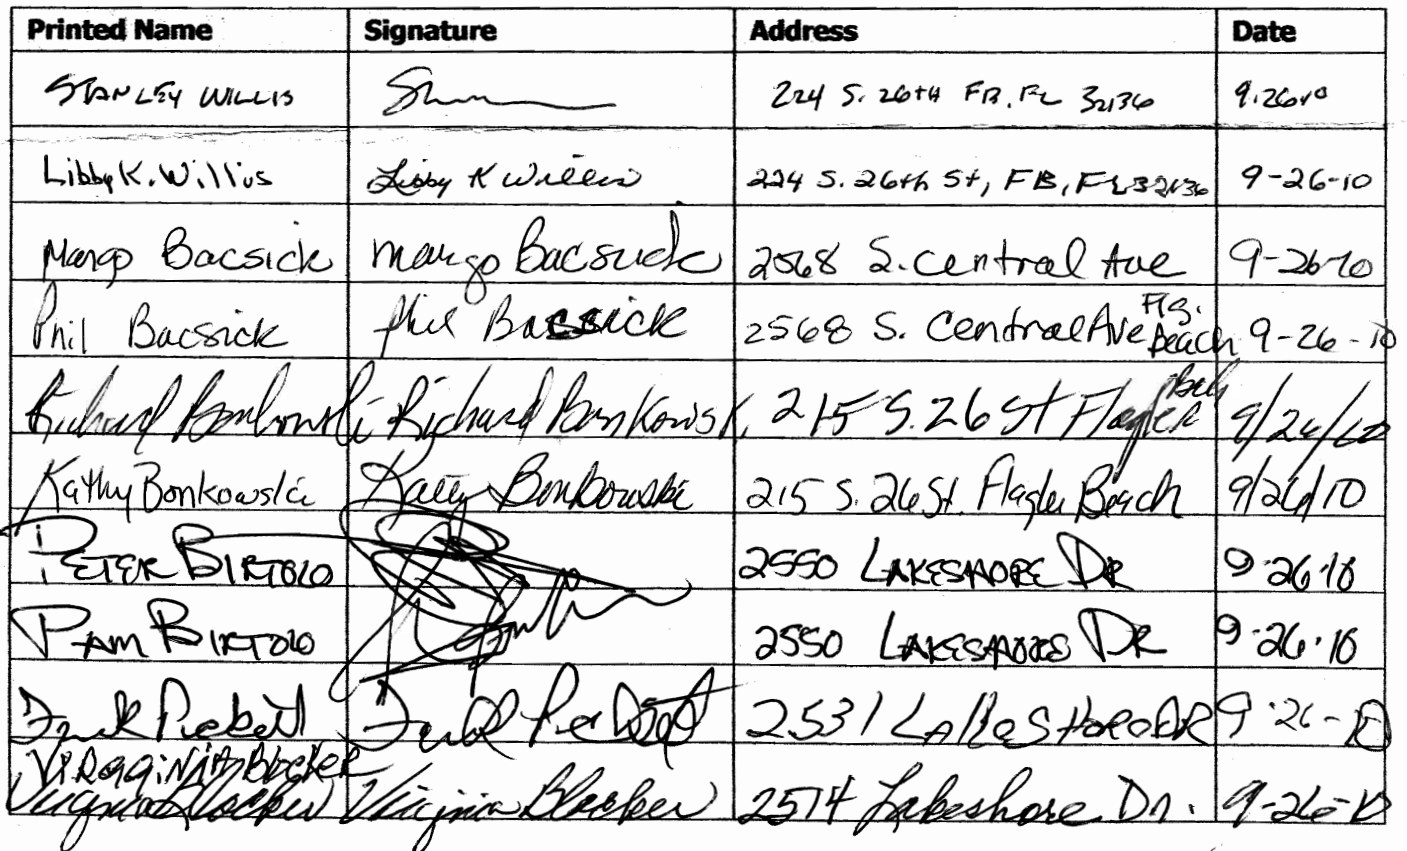 Printed Name Signature Address Date
STANLEY WILLIS 224 S. 26TH FB. FL 32136 9.26.10
Libby K. Willis Libby K Willis 224 S. 26th St, FB, FL 32136 9-26-10
Margo Bacsick Margo Bacsick 2568 S. Central Ave 9-26-10
Phil Bacsick Phil Bacsick 2568 S. Central Ave Flg. Beach 9-26-10
Richard Bonkowski Richard Bonkowski 215 S. 26 St Flagler Bch 9/26/10
Kathy Bonkowski Kathy Bonkowski 215 S. 26 St. Flagler Beach 9/26/10
PETER BIRTOLO 2550 LAKESHORE DR 9.26.10
PAM BIRTOLO 2550 LAKESHORE DR 9.26.10
2531 LAKESHORE DR 9-26-10
VIRGINIA Blocker
Virginia Blocker Virginia Blocker 2574 Lakeshore Dr. 9-26-10